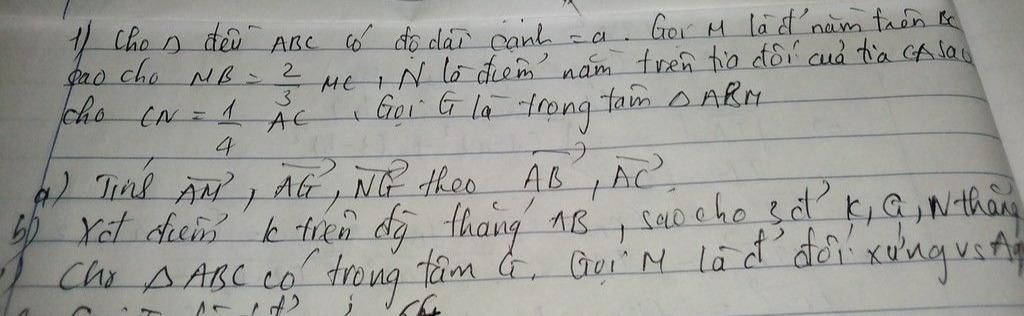 1) Cho Δ đều ABC có độ dài cạnh = a. Gọi M là đ' nằm trên BC
sao cho MB = 2/3 MC, N là điểm nằm trên tia đối của tia CA sao
cho CN = 1/4 AC, Gọi G là trọng tâm Δ ABM
a) Tính AM→, AG→, NG→ theo AB→, AC→.
b) Xét điểm k trên đg thẳng AB, sao cho 3 đ' k, G, N thẳng
Cho Δ ABC có trong tâm G. Gọi M là đ' đối xứng vs A